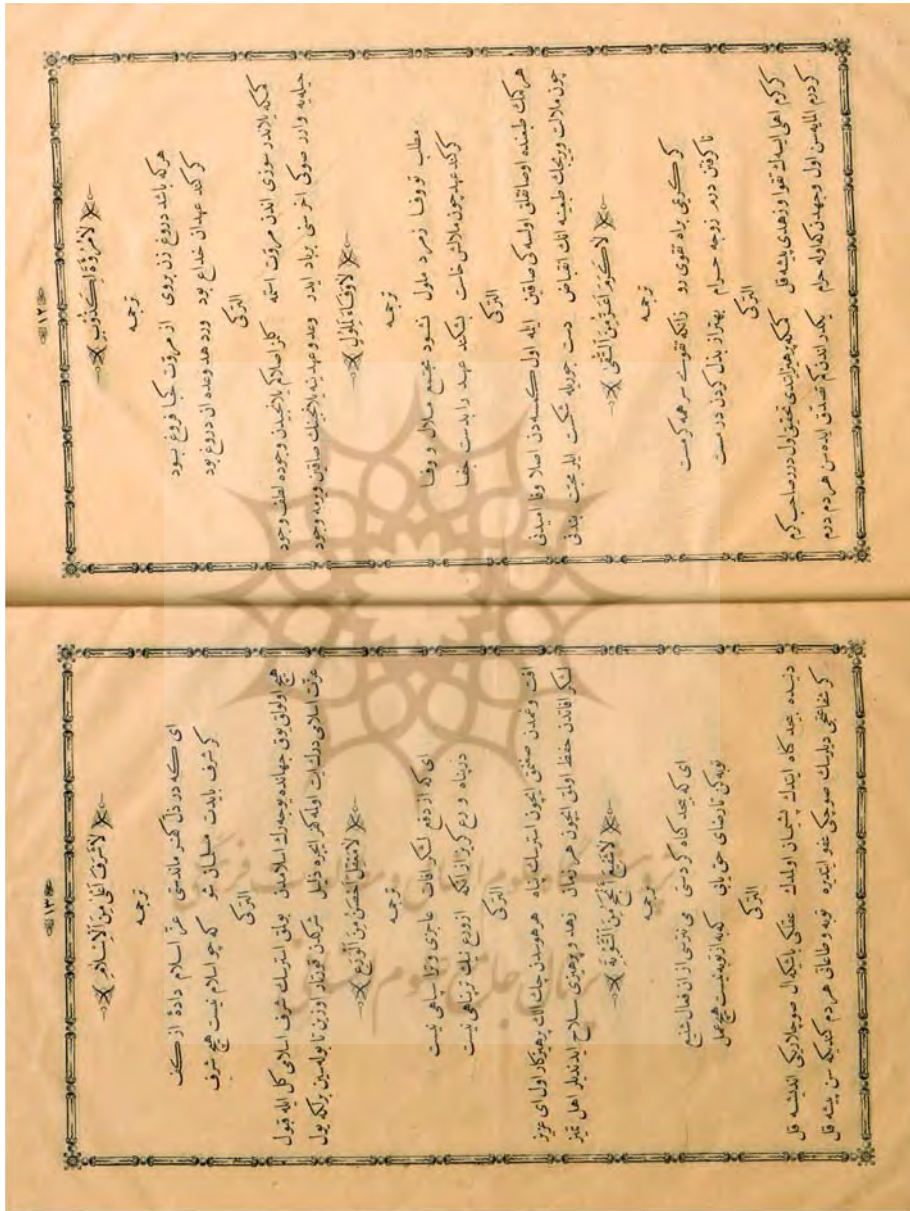 ﴿١٢﴾
لَا مُرُوَّةَ لِكَذُوبٍ
ترجمه
هركه باشد دروغ زن بروى از مروّت كجا فروغ بود
گر كند عهدان خداع بود ورد هد وعده ان دروغ بود
التركى
كمكه يلاندر سوزى اندن مروّت استمه كلز اصلا كم يلانجيدن وجوده لطف وجود
حيله يه وارر صوكى اخر سنى برباد ايدر وعد و عهدينه يلانجينك صاقين ويرمه وجود
لَا وَفَاءَ لِمَلُولٍ
ترجمه
مطلب تو وفا زمرد ملول نشود مجتمع ملال و وفا
گر كند عهد چون ملالش خاست بشكند عهد را بدست جفا
التركى
هر كمك طبعنده اوصانقلق اولسه كى صاقين ايله اول كسه دن اصلا وفا اميدنى
چون ملالت ويريجك طبعينه انك انقباض دست جوريله شكست ايلر محبت بندنى
لَا كَرَمَ أَعَزُّ مِنَ التُّقَى
ترجمه
گر كريمى براه تقوى رو زانكه تقوى سر همه كرمست
نا گرفتن درم ز وجه حرام بهتر از بذل كردن درمست
التركى
كمكه پرهيز اتدى تحقيق اول درر صاحب كرم گر كرم اهلى ايسه ك تقوا و زهدى پيشه قل
يكدر اندن كم تصدّق ايده سن هر دم درم گر درم المايه سن اول وجهدن كه اوله حرام
﴿١٣﴾
لَا شَرَفَ أَعْلَى مِنَ الْإِسْلَامِ
ترجمه
اى كه در ذلّ كفر ماندستى عزّ اسلام دادۀ از كف
گر شرف بايدت مسلمان شو كه چو اسلام نيست هيچ شرف
التركى
هيچ اولولق يوق جهانده يوجه رك اسلامدن بولق استرسك شرف اسلامى كل ايله قبول
عزّت اسلامى درك ايت اوله كفر ايچره ذليل شركدن قورتار اوزن تا بوله سين برلكه يول
لَا مَعْقِلَ أَحْصَنُ مِنَ الْوَرَعِ
ترجمه
اى كه از دفع لشكر افات عاجزى و ترا سپاهى نيست
در پناه ورع گريز ازانكه از ورع نيك تر پناهى نيست
التركى
افت و غمدن صغنمق ايچون استرسك پناه هر هوسدن چك الك پرهيزكار اول اى عزيز
لشكر افاتدن حفظ اولق ايچون هر زمان زهد و پرهيزى سلاح ايدنديلر اهل تميز
لَا شَفِيعَ أَنْجَحُ مِنَ التَّوْبَةِ
ترجمه
اى كه بيحد گناه كردستى مى نترسى ازان فعال شنيع
توبه كن تا رضاى حق يابى كه به از توبه نيست هيچ عمل
التركى
دنيده بيحد گناه ايتدك پشيمان اولمدك عقلكى باشيكه ال صوچلاريكى انديشه قل
گر شفاعتجى ديلرسك صوچكى عفو ايتديره توبه و طاعاتى هر دم كنديكه سن پيشه قل